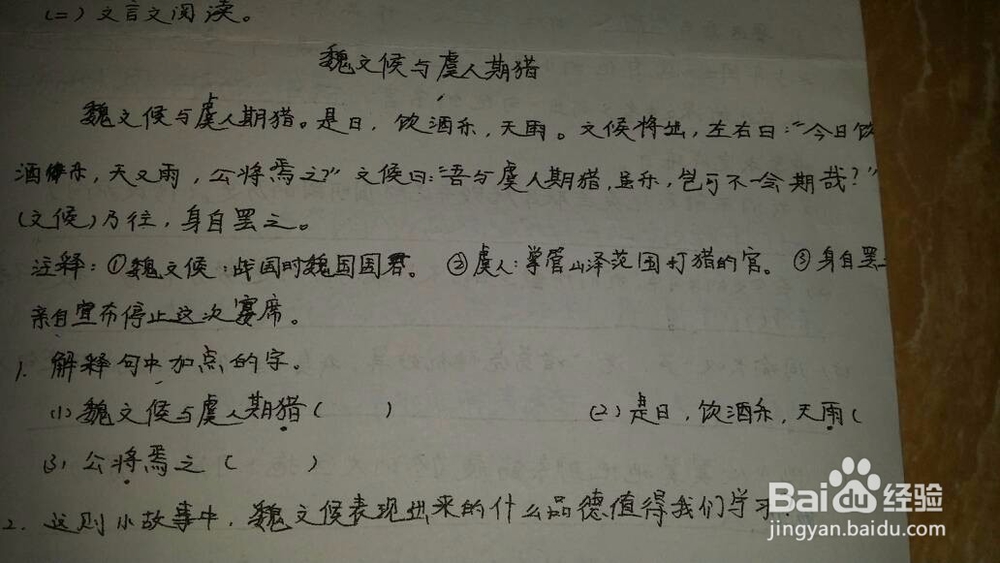 (二)文言文阅读。
魏文候与虞人期猎
魏文候与虞人期猎。是日，饮酒乐，天雨。文候将出，左右曰："今日饮
酒乐，天又雨，公将焉之?"文候曰："吾与虞人期猎，虽乐，岂可不一会期哉?"
(文候)乃往，身自罢之。
注释：①魏文候：战国时魏国国君。 ②虞人：掌管山泽范围打猎的官。 ③身自罢
亲自宣布停止这次宴席。
1. 解释句中加点的字。
(1)魏文候与虞人期猎( ) (2)是日，饮酒乐，天雨(
(3)公将焉之( )
2. 这则小故事中，魏文候表现出来的什么品德值得我们学习
Baidu经验
jingyan.baidu.com